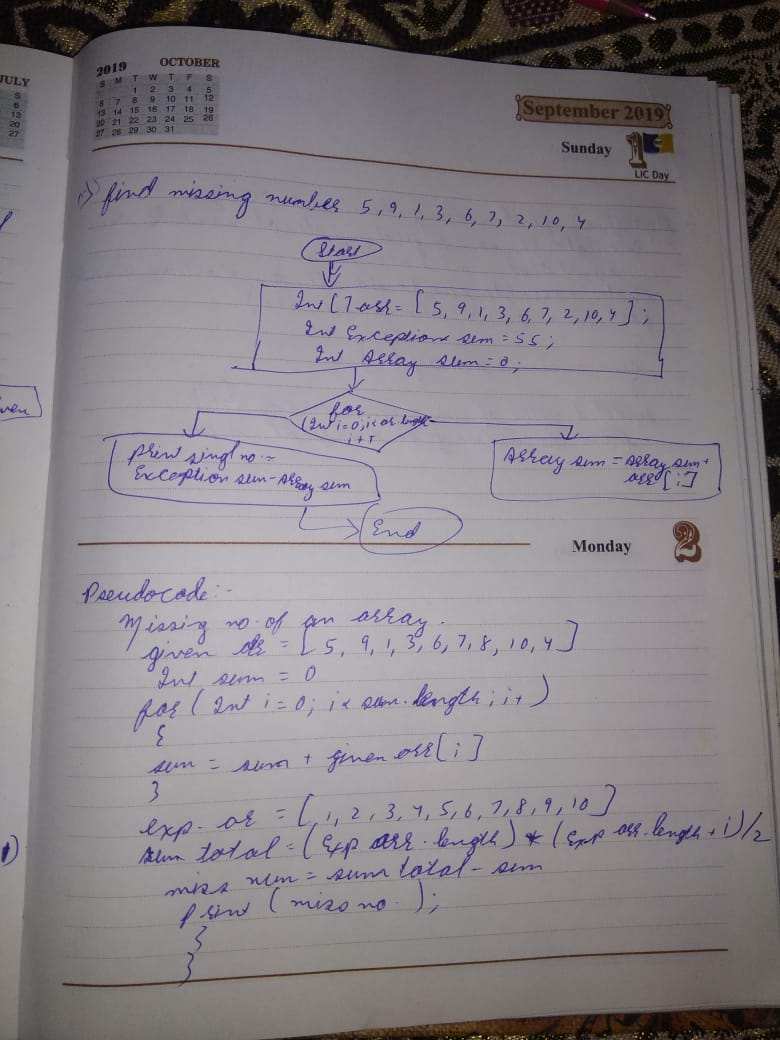 JULY
S
6
13
20
27
2019 OCTOBER
S M T W T F S
1 2 3 4 5
6 7 8 9 10 11 12
13 14 15 16 17 18 19
20 21 22 23 24 25 26
27 28 29 30 31
September 2019
Sunday 1
LIC Day
find missing number 5, 9, 1, 3, 6, 7, 2, 10, 4
Start
Int [] arr = [ 5, 9, 1, 3, 6, 7, 2, 10, 4 ] ;
Int Exception sum = 55 ;
Int Array sum = 0 ;
for
(Int i = 0; i < ar length
i + +
print singl no. =
Exception sum - Array sum
Array sum = array sum +
arr [i]
End
Monday 2
Pseudocode :-
Missing no. of an array.
given ar = [ 5, 9, 1, 3, 6, 7, 8, 10, 4 ]
Int sum = 0
for ( Int i = 0; i < sum. length ; i + )
{
sum = sum + given arr [ i ]
}
exp. ar = [ 1, 2, 3, 4, 5, 6, 7, 8, 9, 10 ]
sum total = (Exp arr. length) * (Exp arr. length + i) / 2
miss num = sum total - sum
print ( miss no. ) ;
}
}